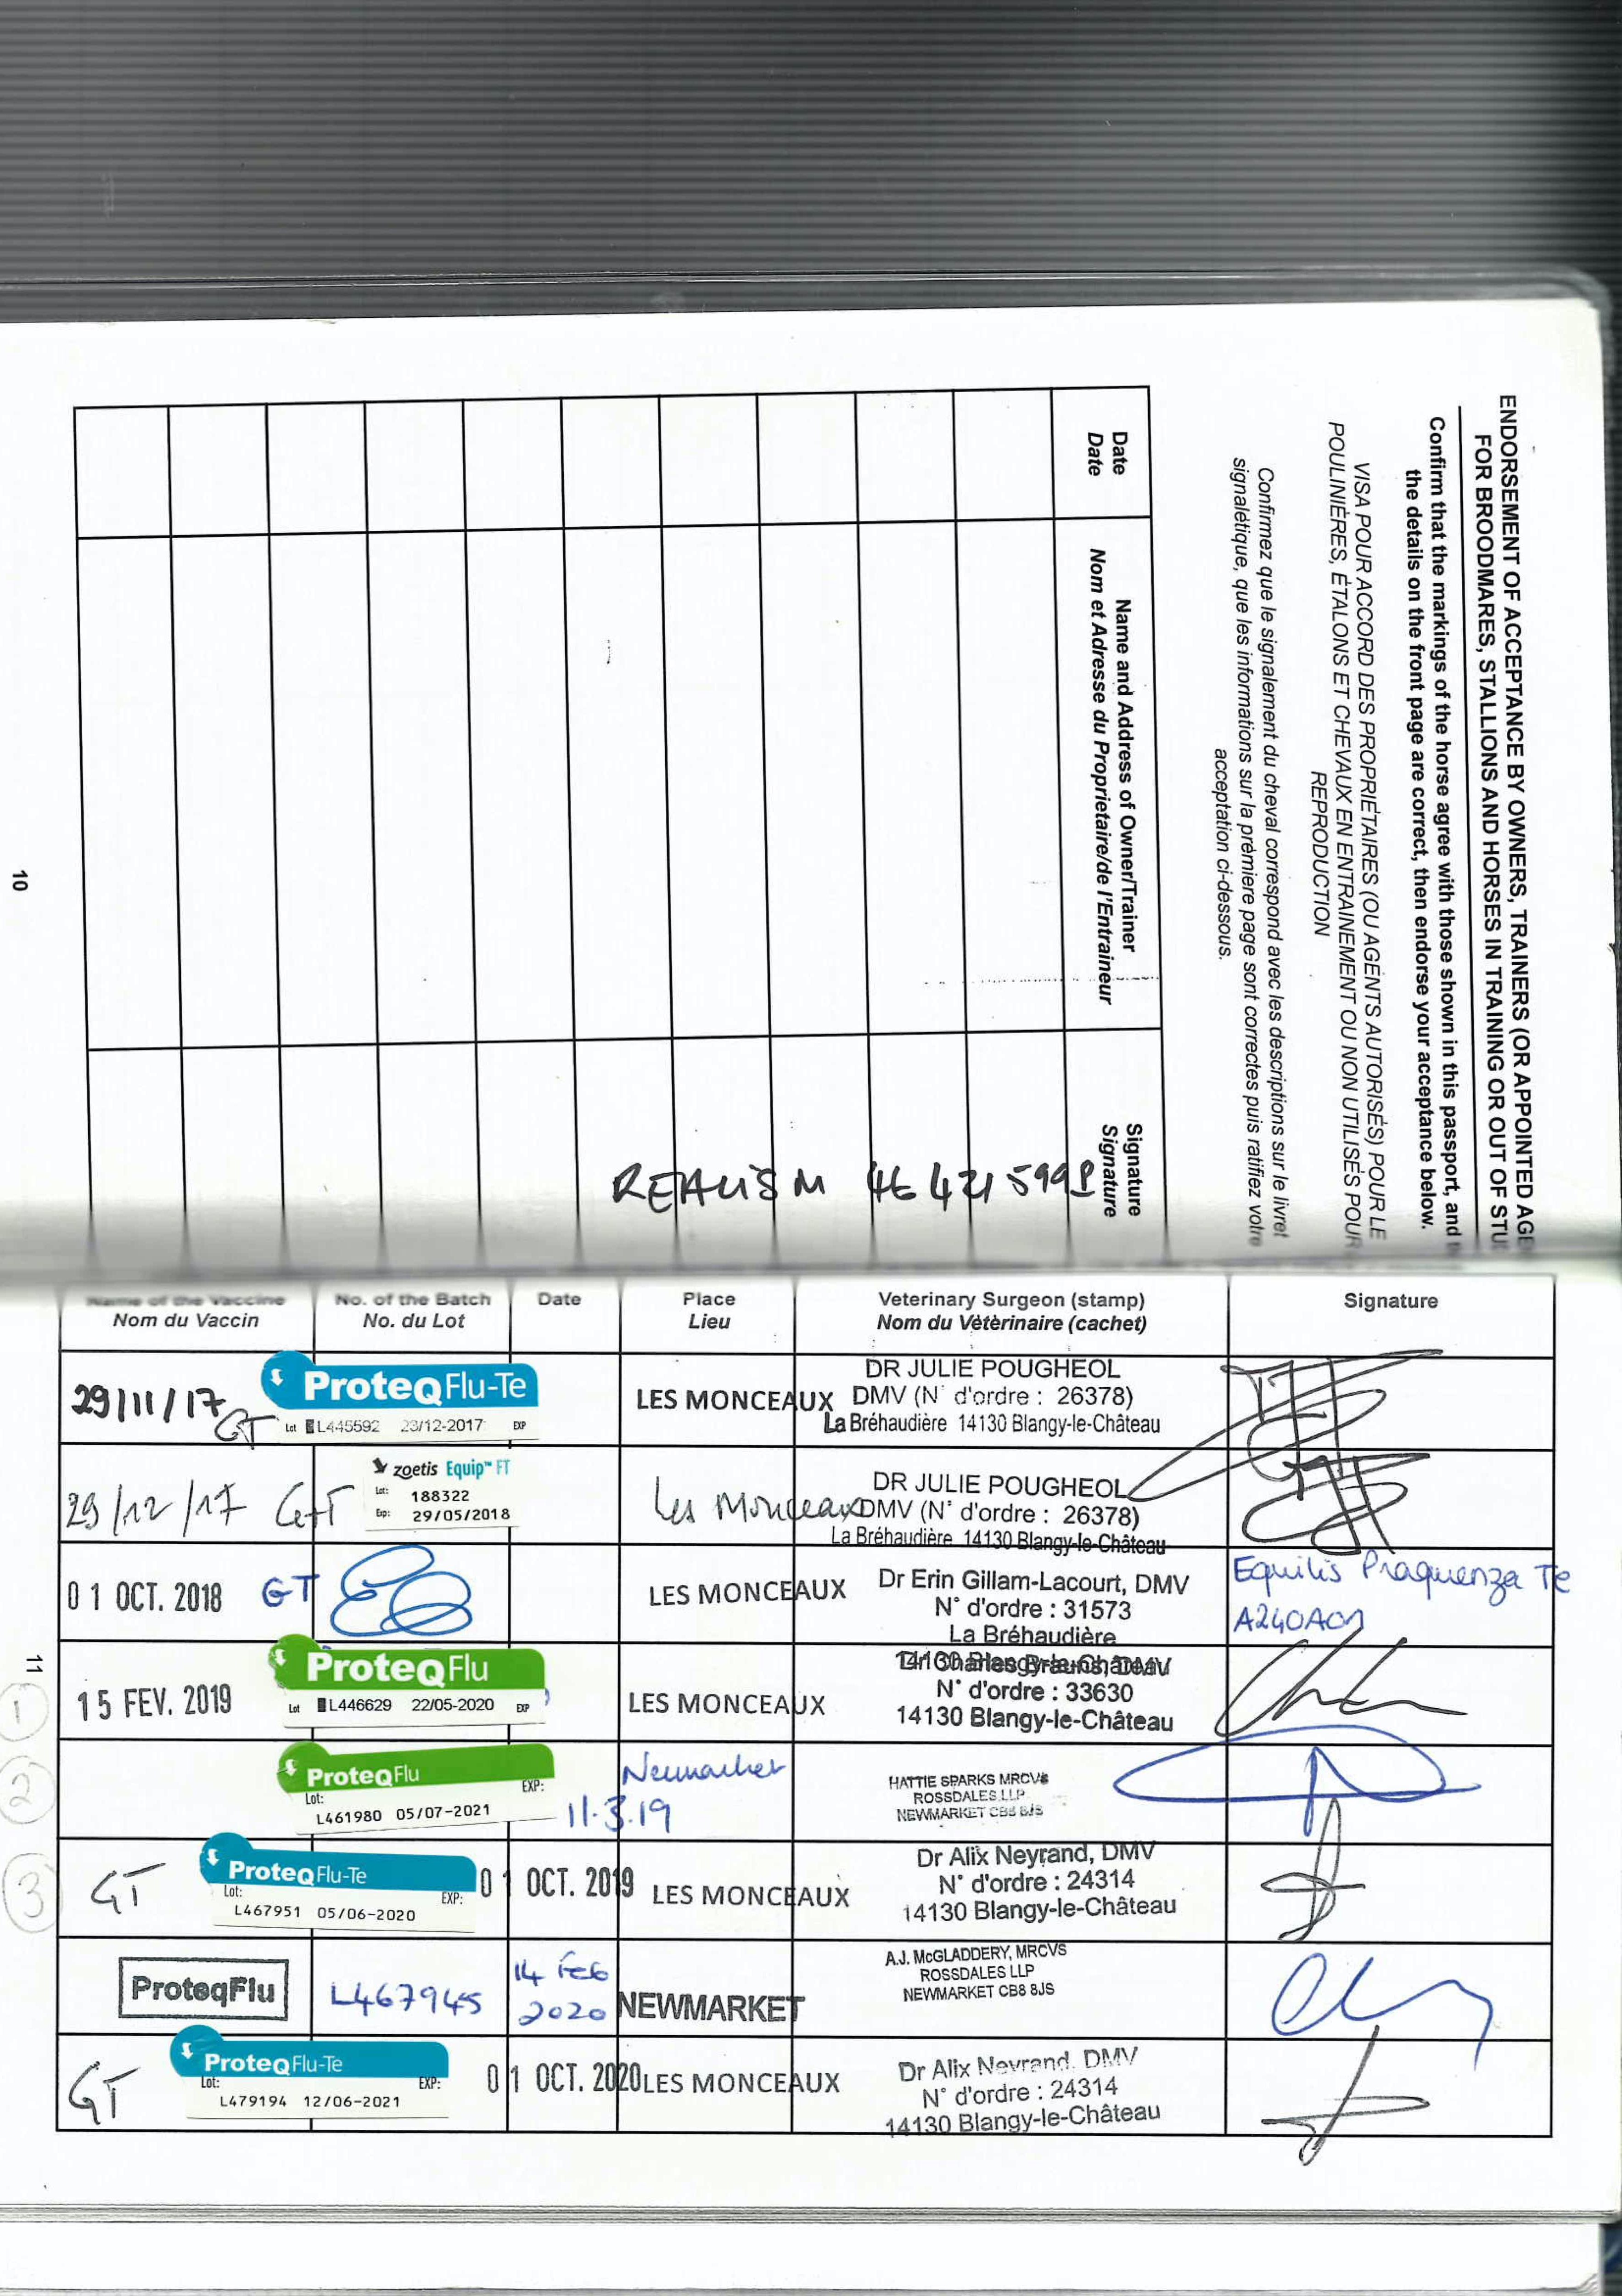 ENDORSEMENT OF ACCEPTANCE BY OWNERS, TRAINERS (OR APPOINTED AGE
FOR BROODMARES, STALLIONS AND HORSES IN TRAINING OR OUT OF STU
Confirm that the markings of the horse agree with those shown in this passport, and
the details on the front page are correct, then endorse your acceptance below.
VISA POUR ACCORD DES PROPRIÉTAIRES (OU AGENTS AUTORISÉS) POUR LE
POULINIÈRES, ÉTALONS ET CHEVAUX EN ENTRAINEMENT OU NON UTILISÉS POUR
REPRODUCTION
Confirmez que le signalement du cheval correspond avec les descriptions sur le livret
signalétique, que les informations sur la première page sont correctes puis ratifiez votre
acceptation ci-dessous.
Date Name and Address of Owner/Trainer Signature
Date Nom et Adresse du Proprietaire/de l'Entraineur Signature
REALISM
10
Name of the Vaccine No. of the Batch Date Place Veterinary Surgeon (stamp) Signature
Nom du Vaccin No. du Lot Lieu Nom du Vétèrinaire (cachet)
29/11/17 GT ProteqFlu-Te
Lot L445592 23/12-2017 EXP
LES MONCEAUX
DR JULIE POUGHEOL
DMV (N° d'ordre : 26378)
La Bréhaudière 14130 Blangy-le-Château
29/12/17 G+T
zoetis Equip™ FT
Lot: 188322
Exp: 29/05/2018
Les Monceaux
DR JULIE POUGHEOL
DMV (N° d'ordre : 26378)
La Bréhaudière 14130 Blangy-le-Château
01 OCT. 2018 GT
LES MONCEAUX
Dr Erin Gillam-Lacourt, DMV
N° d'ordre : 31573
La Bréhaudière
14130 Blangy-le-Château
Equilis Praquenza Te
A240A01
15 FEV. 2019
ProteqFlu
Lot L446629 22/05-2020 EXP
LES MONCEAUX
Dr Charles Brauns, DMV
N° d'ordre : 33630
14130 Blangy-le-Château
1
ProteqFlu
Lot: EXP:
L461980 05/07-2021
Newmarket
11.3.19
HATTIE SPARKS MRCVS
ROSSDALES LLP
NEWMARKET CB8 8JS
2
GT ProteqFlu-Te
Lot: EXP:
L467951 05/06-2020
01 OCT. 2019
LES MONCEAUX
Dr Alix Neyrand, DMV
N° d'ordre : 24314
14130 Blangy-le-Château
3
ProteqFlu
L467945
14 Feb
2020
NEWMARKET
A.J. McGLADDERY, MRCVS
ROSSDALES LLP
NEWMARKET CB8 8JS
GT ProteqFlu-Te
Lot: EXP:
L479194 12/06-2021
01 OCT. 2020
LES MONCEAUX
Dr Alix Neyrand, DMV
N° d'ordre : 24314
14130 Blangy-le-Château
11